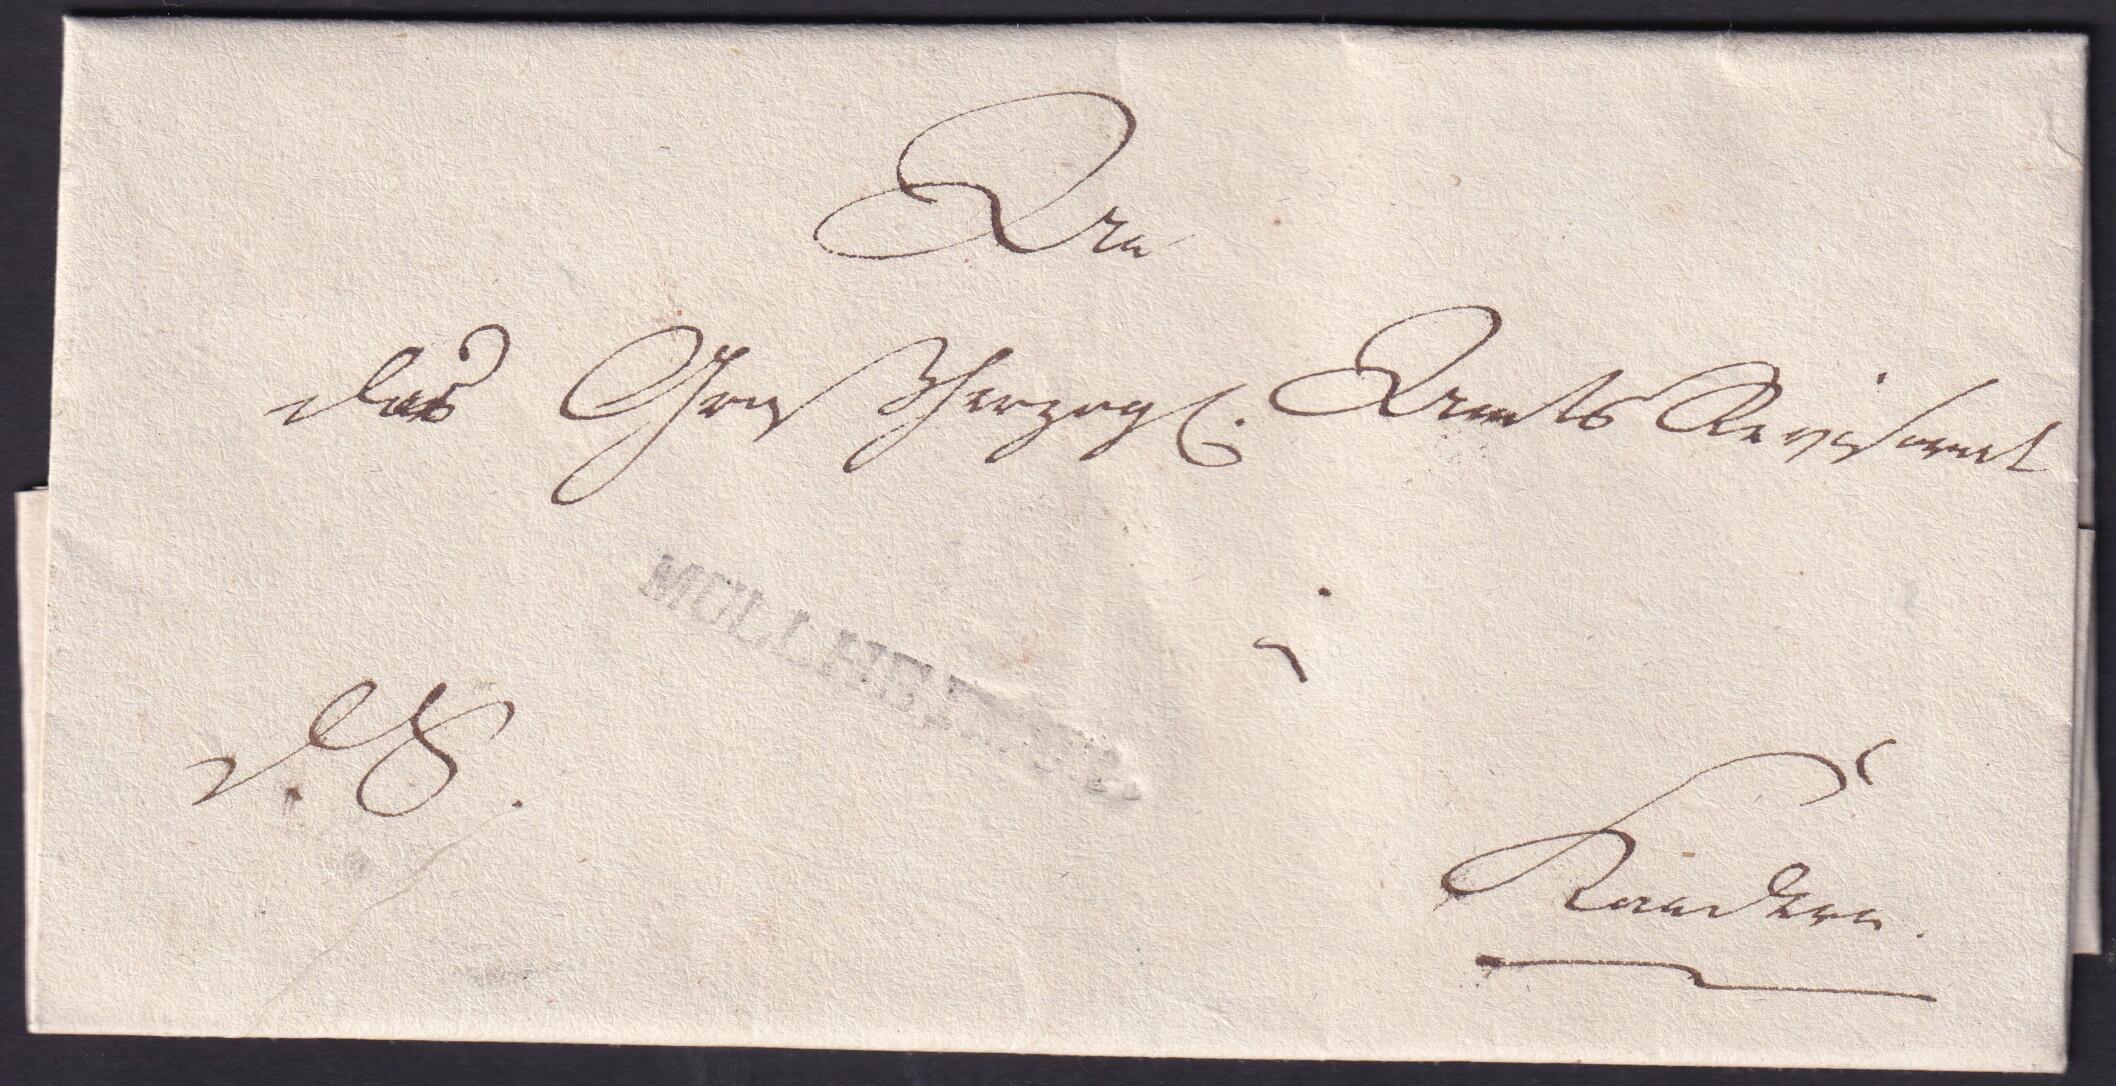 An
das Großherzogl. Amts Revisorat
MÜLLHEIM
in
d. S.
Kandern.